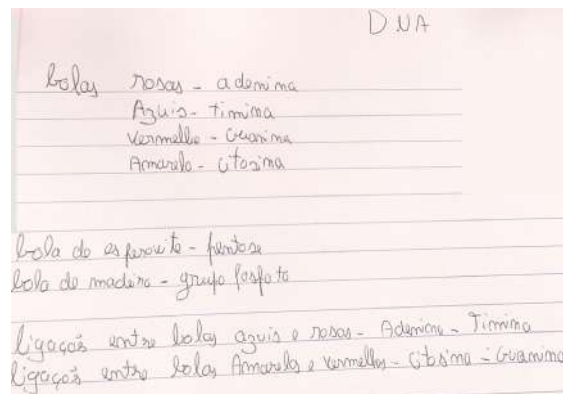 DNA
bolas rosas - adenina
Azuis - timina
Vermelho - Guanina
Amarelo - citosina
bola de espervite - pentose
bola de madeira - grupo fosfato
ligaçoã entre bolas azuis e rosas - Adenina - Timina
ligaçoã entre bolas Amarelas e vermelhas - Citosina - Guanina